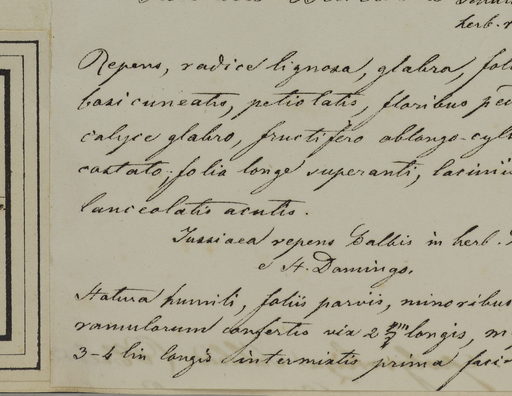 herb.
Repens, radice lignosa, glabra,
basi cuneatis, petiolatis, floribus
calyce glabro, fructifero oblongo-
costato, folia longe superanti,
lanceolatis acutis.
Jussiaea repens Balbis in herb.
e St. Domingo.
Statura humili, foliis parvis, minoribus
ramulorum confertis vix 2 longis,
3-4 lin longis intermixtis prima